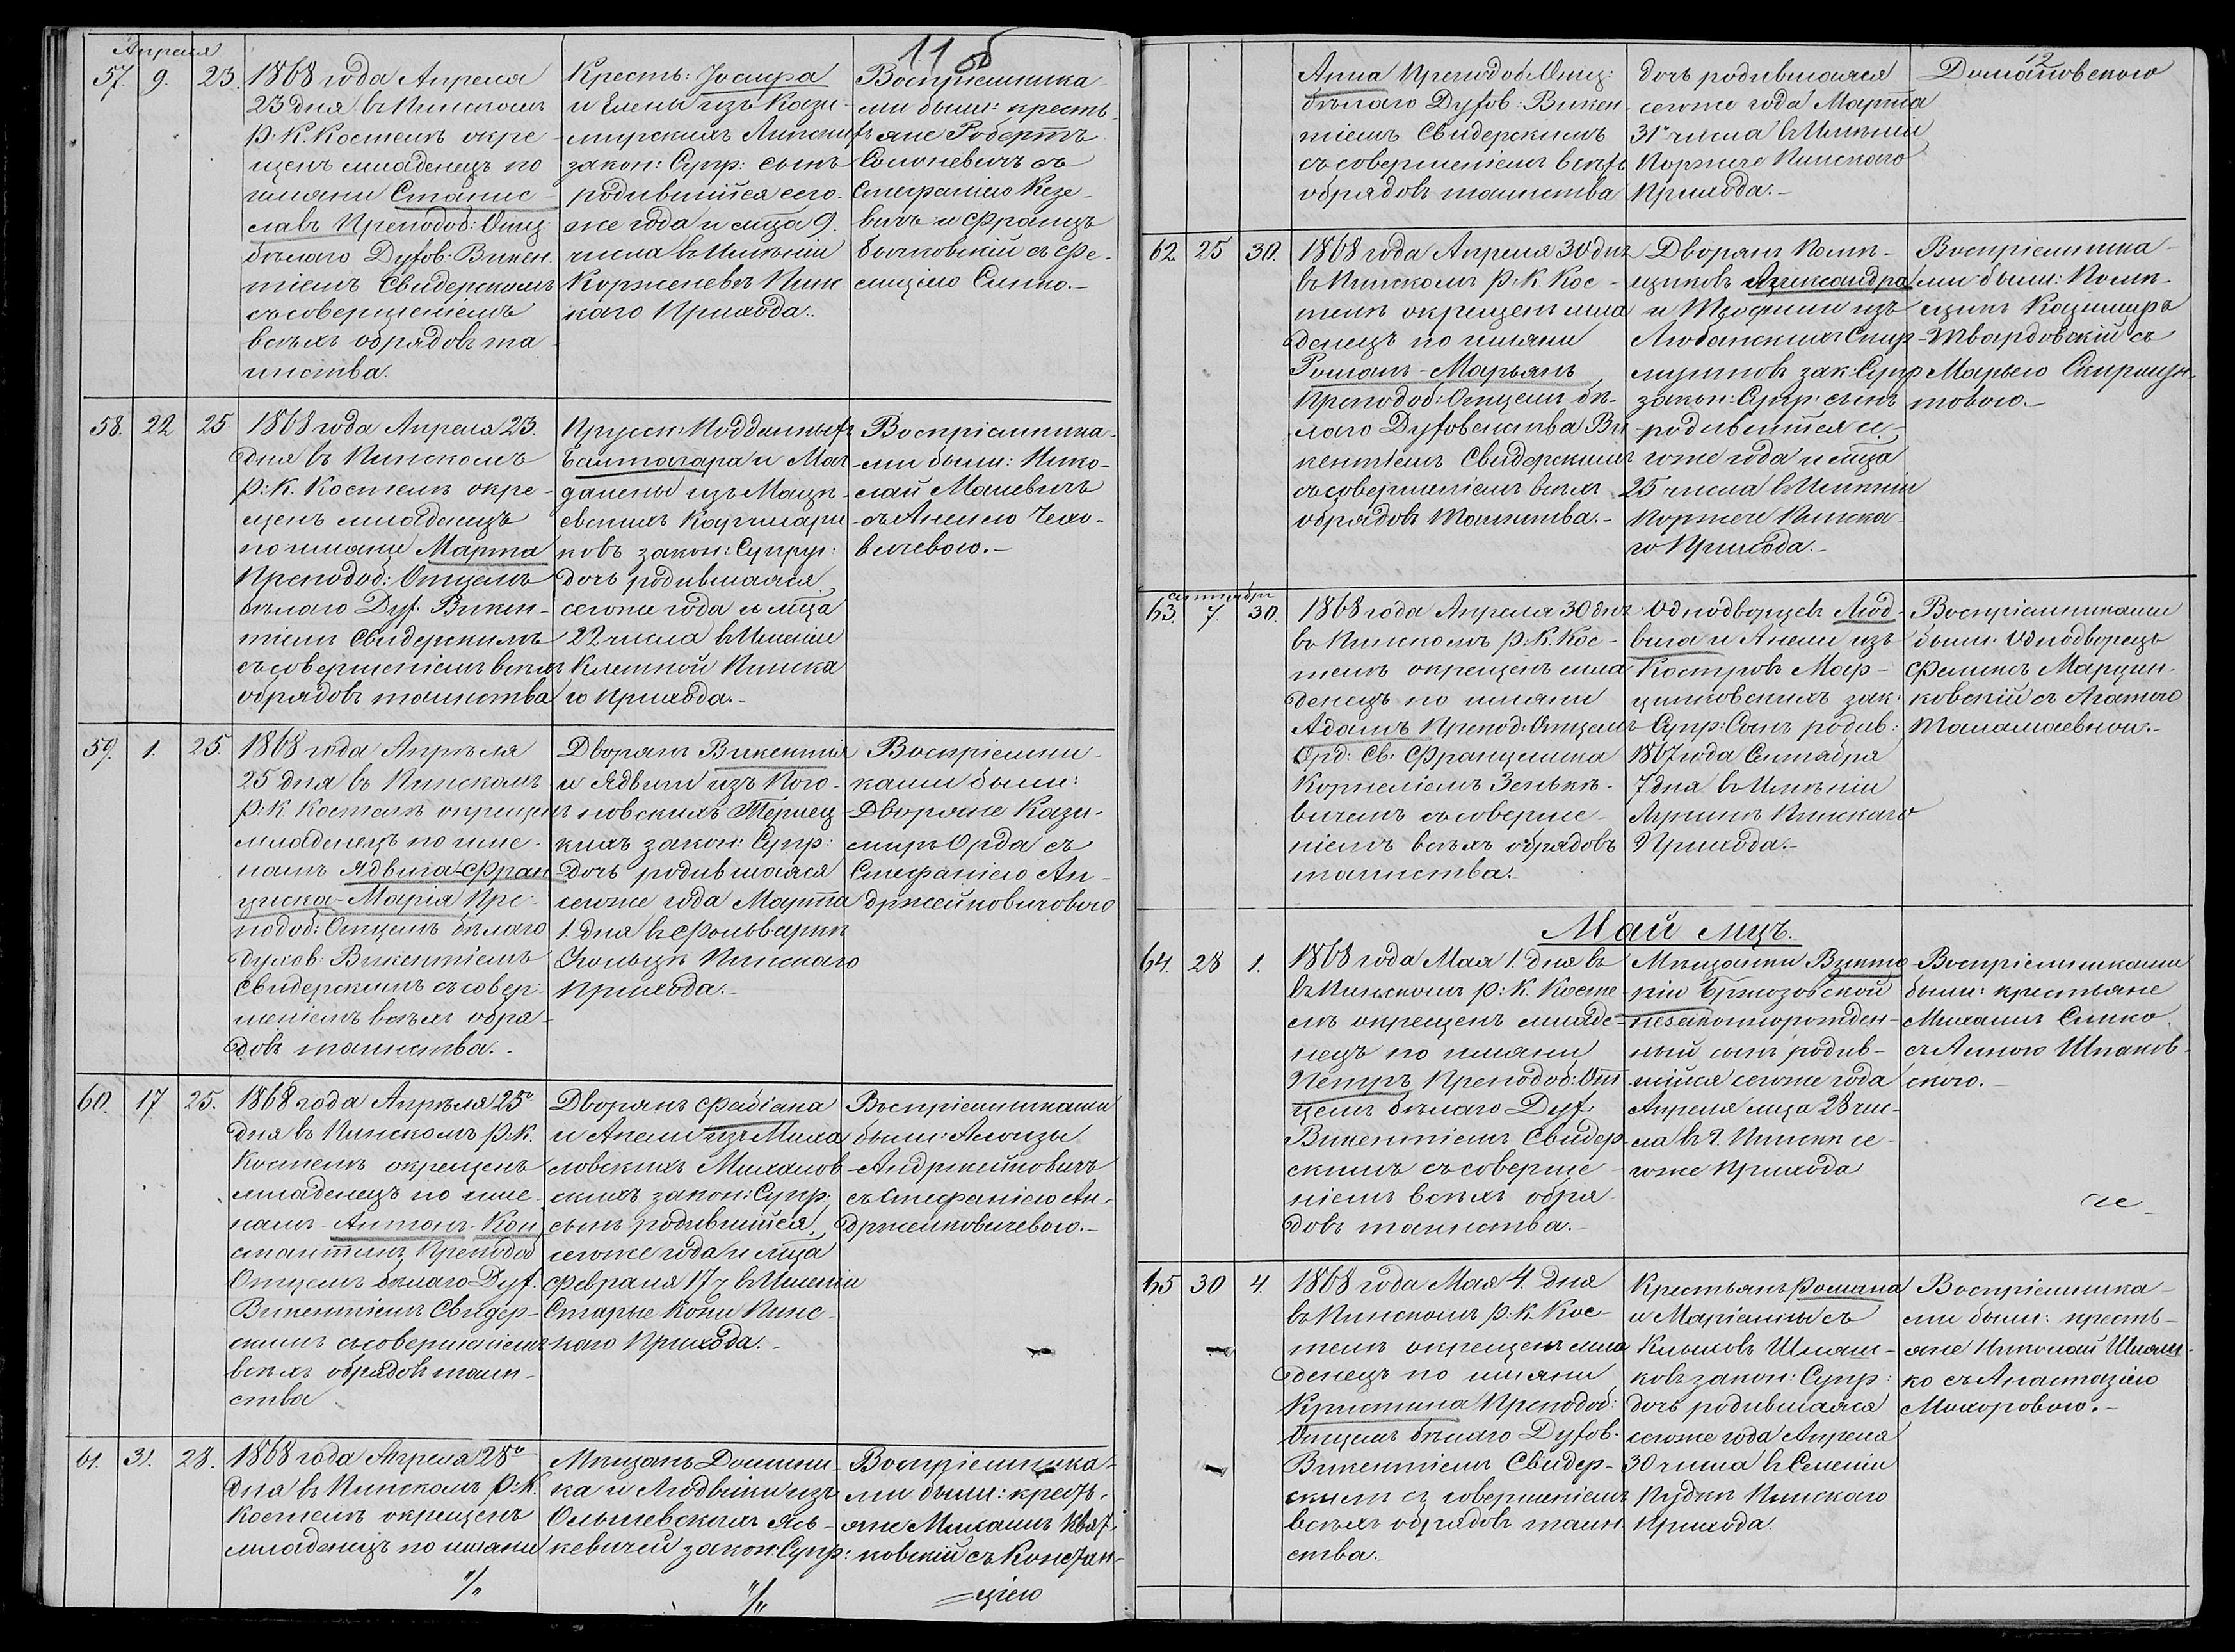 11 об
Апреля
57. 9. 23.
1868 года Апреля
23 дня въ Пинскомъ
Р. К. Костелѣ окре-
щенъ младенецъ по
имяни Станис-
лавъ Преподоб: Отц.
бѣлаго Духов. Викен-
тіемъ Свидерскимъ
съ совершеніемъ
всѣхъ обрядовъ та-
инства.
Кресть: Іосифа
и Елены изъ Кази-
мирскихъ
закон: Супр: сынъ
родившійся сего-
же года и мѣца 9.
числа въ Имѣніи
Корженевѣ Пинс-
каго Прихода.
Воспріемника-
ми были: кресть-
яне Робертъ
Солоневичъ съ
Стефаніею Кезе-
вичъ и Францъ
Бычковскій съ Фе-
лиціею Синко.-
58. 22 25
1868 года Апреля 23.
дня въ Пинскомъ
р: к. Костелѣ окре-
щенъ младенецъ
по имяни Марта
Преподоб: Отцемъ
бѣлаго Дух. Викен-
тіемъ Свидерскимъ
съ совершеніемъ всѣхъ
обрядовъ таинства
Прусск: Подданныхъ
Балтазара и Маг-
далены изъ Мацѣ-
евскихъ Карчмари-
ковъ закон: Супруг:
дочь родившаяся
сегоже года и мѣца
22 числа въ Имѣніи
Клетной Пинска-
го Прихода.-
Воспріемника-
ми были: Нико-
лай Маневичъ
съ Анелею Чехо-
вичевою.-
59. 1. 25.
1868 года Апрѣля
25 дня въ Пинскомъ
р: к. Костелѣ окрещенъ
младенецъ по име-
намъ Ядвига-Фран-
циска-Марія Пре-
подоб: Отцемъ бѣлаго
духов. Викентіемъ
Свидерскимъ съ совер-
шеніемъ всѣхъ обря-
довъ таинства.-
Дворянъ Викентія
и Ядвиги изъ Пого-
новскихъ Тержец-
кихъ закон: Супр:
дочь родившаяся
сегоже года Марта
1. дня въ Фольваркѣ
Пинскаго
Прихода.-
Воспріемни-
ками были:
Дворяне Кази-
миръ Орда съ
Стефаніею Ан-
држейковичовою
60. 17 25.
1868 года Апрѣля 25го
дня въ Пинскомъ р: к.
Костелѣ окрещенъ
младенецъ по име-
намъ Антонъ-Кон-
стантинъ Преподоб
Отцемъ бѣлаго Дух.
Викентіемъ Свидер-
скимъ съ совершеніемъ
всѣхъ обрядовъ таин-
ства
Дворянъ Фабіана
и Анели изъ Миха-
ловскихъ Михалов-
скихъ закон: Супр.
сынъ родившійся
сегоже года и мѣца
Февраля 17 ч въ Имѣніи
Старые Кони Пинс-
каго Прихода.-
Воспріемниками
были: Алоизы
Андржейковичъ
съ Стефаніею Ан-
држейковичевою.-
61. 31. 28.
1868 года Апреля 28го
дня въ Пинскомъ р. к.
Костелѣ окрещенъ
младенецъ по имяни
Мѣщанъ Домини-
ка и Людвики изъ
Ольшевскихъ Ясь-
кевичей закон: Супр:
Воспріемника-
ми были: кресть-
яне Михаилъ Квят-
ковскій съ Констан-
=ціею
12
Анна Преподоб. Отц:
бѣлаго Духов: Викен-
тіемъ Свидерскимъ
съ совершеніемъ всѣхъ
обрядовъ таинства
дочь родившаяся
сегоже года Марта
31го числа въ Имѣніи
Поржече Пинскаго
Прихода.-
Домановскою
62 25 30.
1868 года Апреля 30 дня
въ Пинскомъ р. к. Кос-
телѣ окрещенъ мла-
денецъ по имяни
Романъ-Марьянъ
Преподоб: Отцемъ бѣ-
лаго Духовенства Ви-
кентіемъ Свидерскимъ
съ совершеніемъ всѣхъ
обрядовъ Таинства.-
Дворянъ Помѣ-
щиковъ Александра
и Теофиліи изъ
Любанскихъ Скир-
мунтовъ зак. Супр
закон: Супр: сынъ
родившійся се-
гоже года и мѣца
25 числа въ Имѣніи
Поржече Пинска-
го Прихода.-
Воспріемника-
ми были: Помѣ-
щикъ Казимиръ
Твардовскій съ
Марьею Скирмун-
товою.-
сентябр
63. 7. 30.
1868 года Апреля 30 дня
въ Пинскомъ р. к. Кос-
телѣ окрещенъ мла-
денецъ по имяни
Адамъ Препод: Отцемъ
Орд: Св. Франциска
Корнеліемъ Зенькѣ-
вичемъ съ соверше-
ніемъ всѣхъ обрядовъ
таинства.-
Однодворцевъ Люд-
вига и Анели изъ
Костровъ Мар-
цинковскихъ зак:
Супр: Сынъ родив:
1867 года Сентября
7 дня въ Имѣніи
Пинскаго
Прихода.-
Воспріемниками
были: Однодворецъ
Феликсъ Марцин-
ковскій съ Агатою
Май мцъ.
64. 28 1.
1868 года Мая 1. дня въ
въ Пинскомъ р: к. Косте-
лѣ окрещенъ младе-
нецъ по имяни
Петръ Преподоб: От-
цемъ бѣлаго Дух:
Викентіемъ Свидер-
скимъ съ соверше-
ніемъ всѣхъ обря-
довъ таинства.-
Мѣщанки Викто-
ріи Бржозовской
незаконнорожден-
ный сынъ родив-
шійся сегоже года
Апреля мѣца 28 чис-
ла въ г. Пинскѣ се-
гоже Прихода
Воспріемниками
были: крестьяне
Михаилъ Синко
съ Анною Шпаков-
скою.-
65 30 4.
1868 года Мая 4. дня
въ Пинскомъ р. к. Кос-
телѣ окрещенъ мла-
денецъ по имяни
Кристина Преподоб:
Отцемъ бѣлаго Духов.
Викентіемъ Свидер-
скимъ съ совершеніемъ
всѣхъ обрядовъ таин-
ства.-
Крестьянъ Романа
и Маріанны съ
Климовъ Шляш-
ковъ закон: Супр:
дочь родившаяся
сегоже года Апреля
30 числа въ Селеніи
Рудкѣ Пинскаго
Прихода.
Воспріемника-
ми были: кресть-
яне Николай Шляш-
ко съ Анастазіею
Махоровою.-